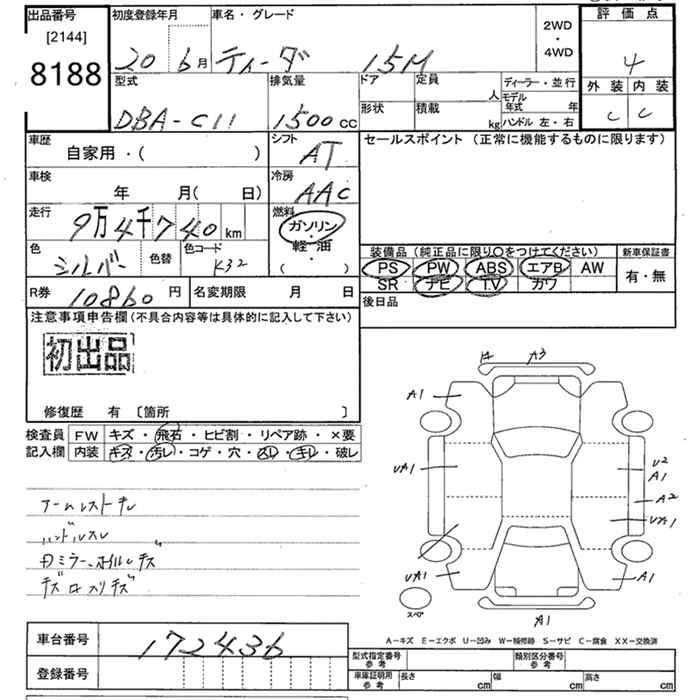 出品番号
[2144]
8188
初度登録年月
20 6月
車名・グレード
ティーダ 15M
2WD
・
4WD
評価点
4
外装 内装
C C
型式
DBA-C11
排気量
1500 CC
ドア 定員 人
形状 積載 kg
ディーラー・並行
モデル年式 年
ハンドル 左・右
車歴
自家用・( )
シフト
AT
セールスポイント(正常に機能するものに限ります)
車検
年 月( 日)
冷房
AAC
走行
9万4千740 km
燃料
ガソリン
・
軽・油
( )
色
シルバー
色替
色コード
K32
装備品(純正品に限り○をつけてください)
PS PW ABS エアB AW
SR ナビ TV カワ
新車保証書
有・無
R券 10860 円
名変期限 月 日
後日品
注意事項申告欄(不具合内容等は具体的に記入して下さい)
初出品
修復歴 有 〔箇所 〕
検査員記入欄
FW キズ・飛石・ヒビ割・リペア跡・×要
内装 キズ・汚レ・コゲ・穴・スレ・キレ・破レ
アームレストキレ
ハンドルスレ
Dミラー、ホイルキズ
A3
A1
UA1
U2
A1
A2
UA1
UA1
A1
スペア
A1
A-キズ E-エクボ U-凹み W-補修跡 S-サビ C-腐食 XX-交換済
車台番号 172436
登録番号
型式指定番号 参考
類別区分番号 参考
車庫証明用 参考
長さ cm 幅 cm 高さ cm